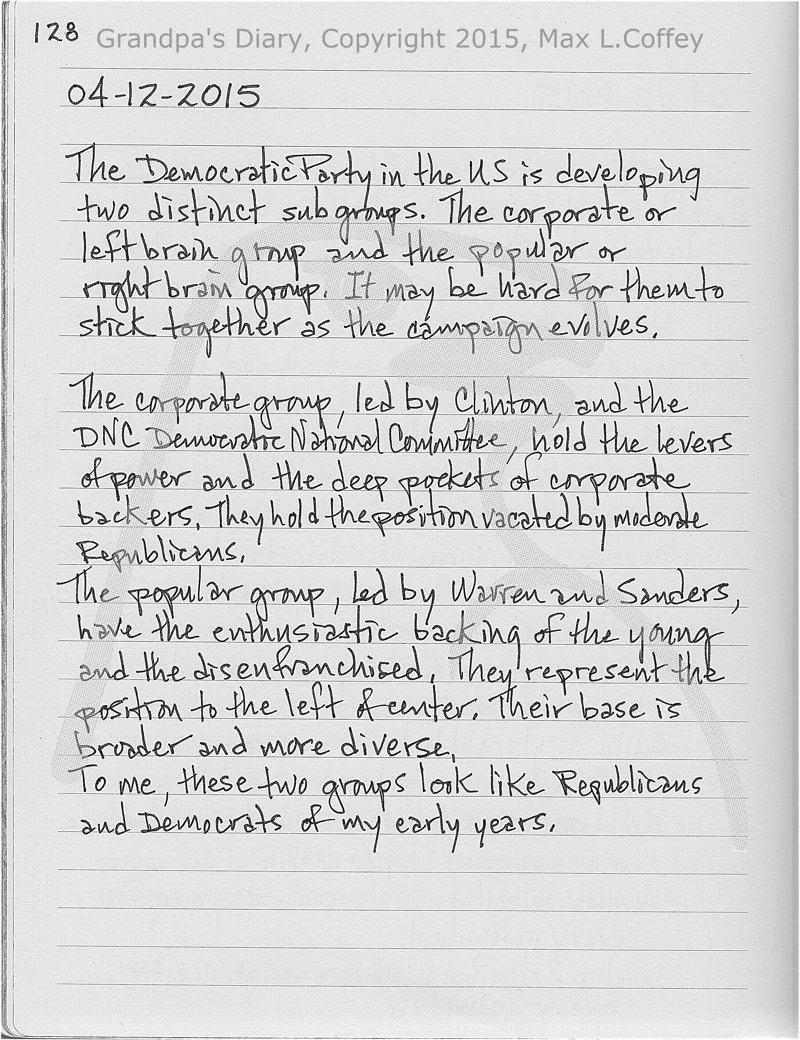 128 Grandpa's Diary, Copyright 2015, Max L.Coffey
04-12-2015
The Democratic Party in the US is developing
two distinct subgroups. The corporate or
left brain group and the popular or
right brain group. It may be hard for them to
stick together as the campaign evolves.
The corporate group, led by Clinton, and the
DNC Democratic National Committee, hold the levers
of power and the deep pockets of corporate
backers. They hold the position vacated by moderate
Republicans.
The popular group, led by Warren and Sanders,
have the enthusiastic backing of the young
and the disenfranchised. They represent the
position to the left of center. Their base is
broader and more diverse.
To me, these two groups look like Republicans
and Democrats of my early years.